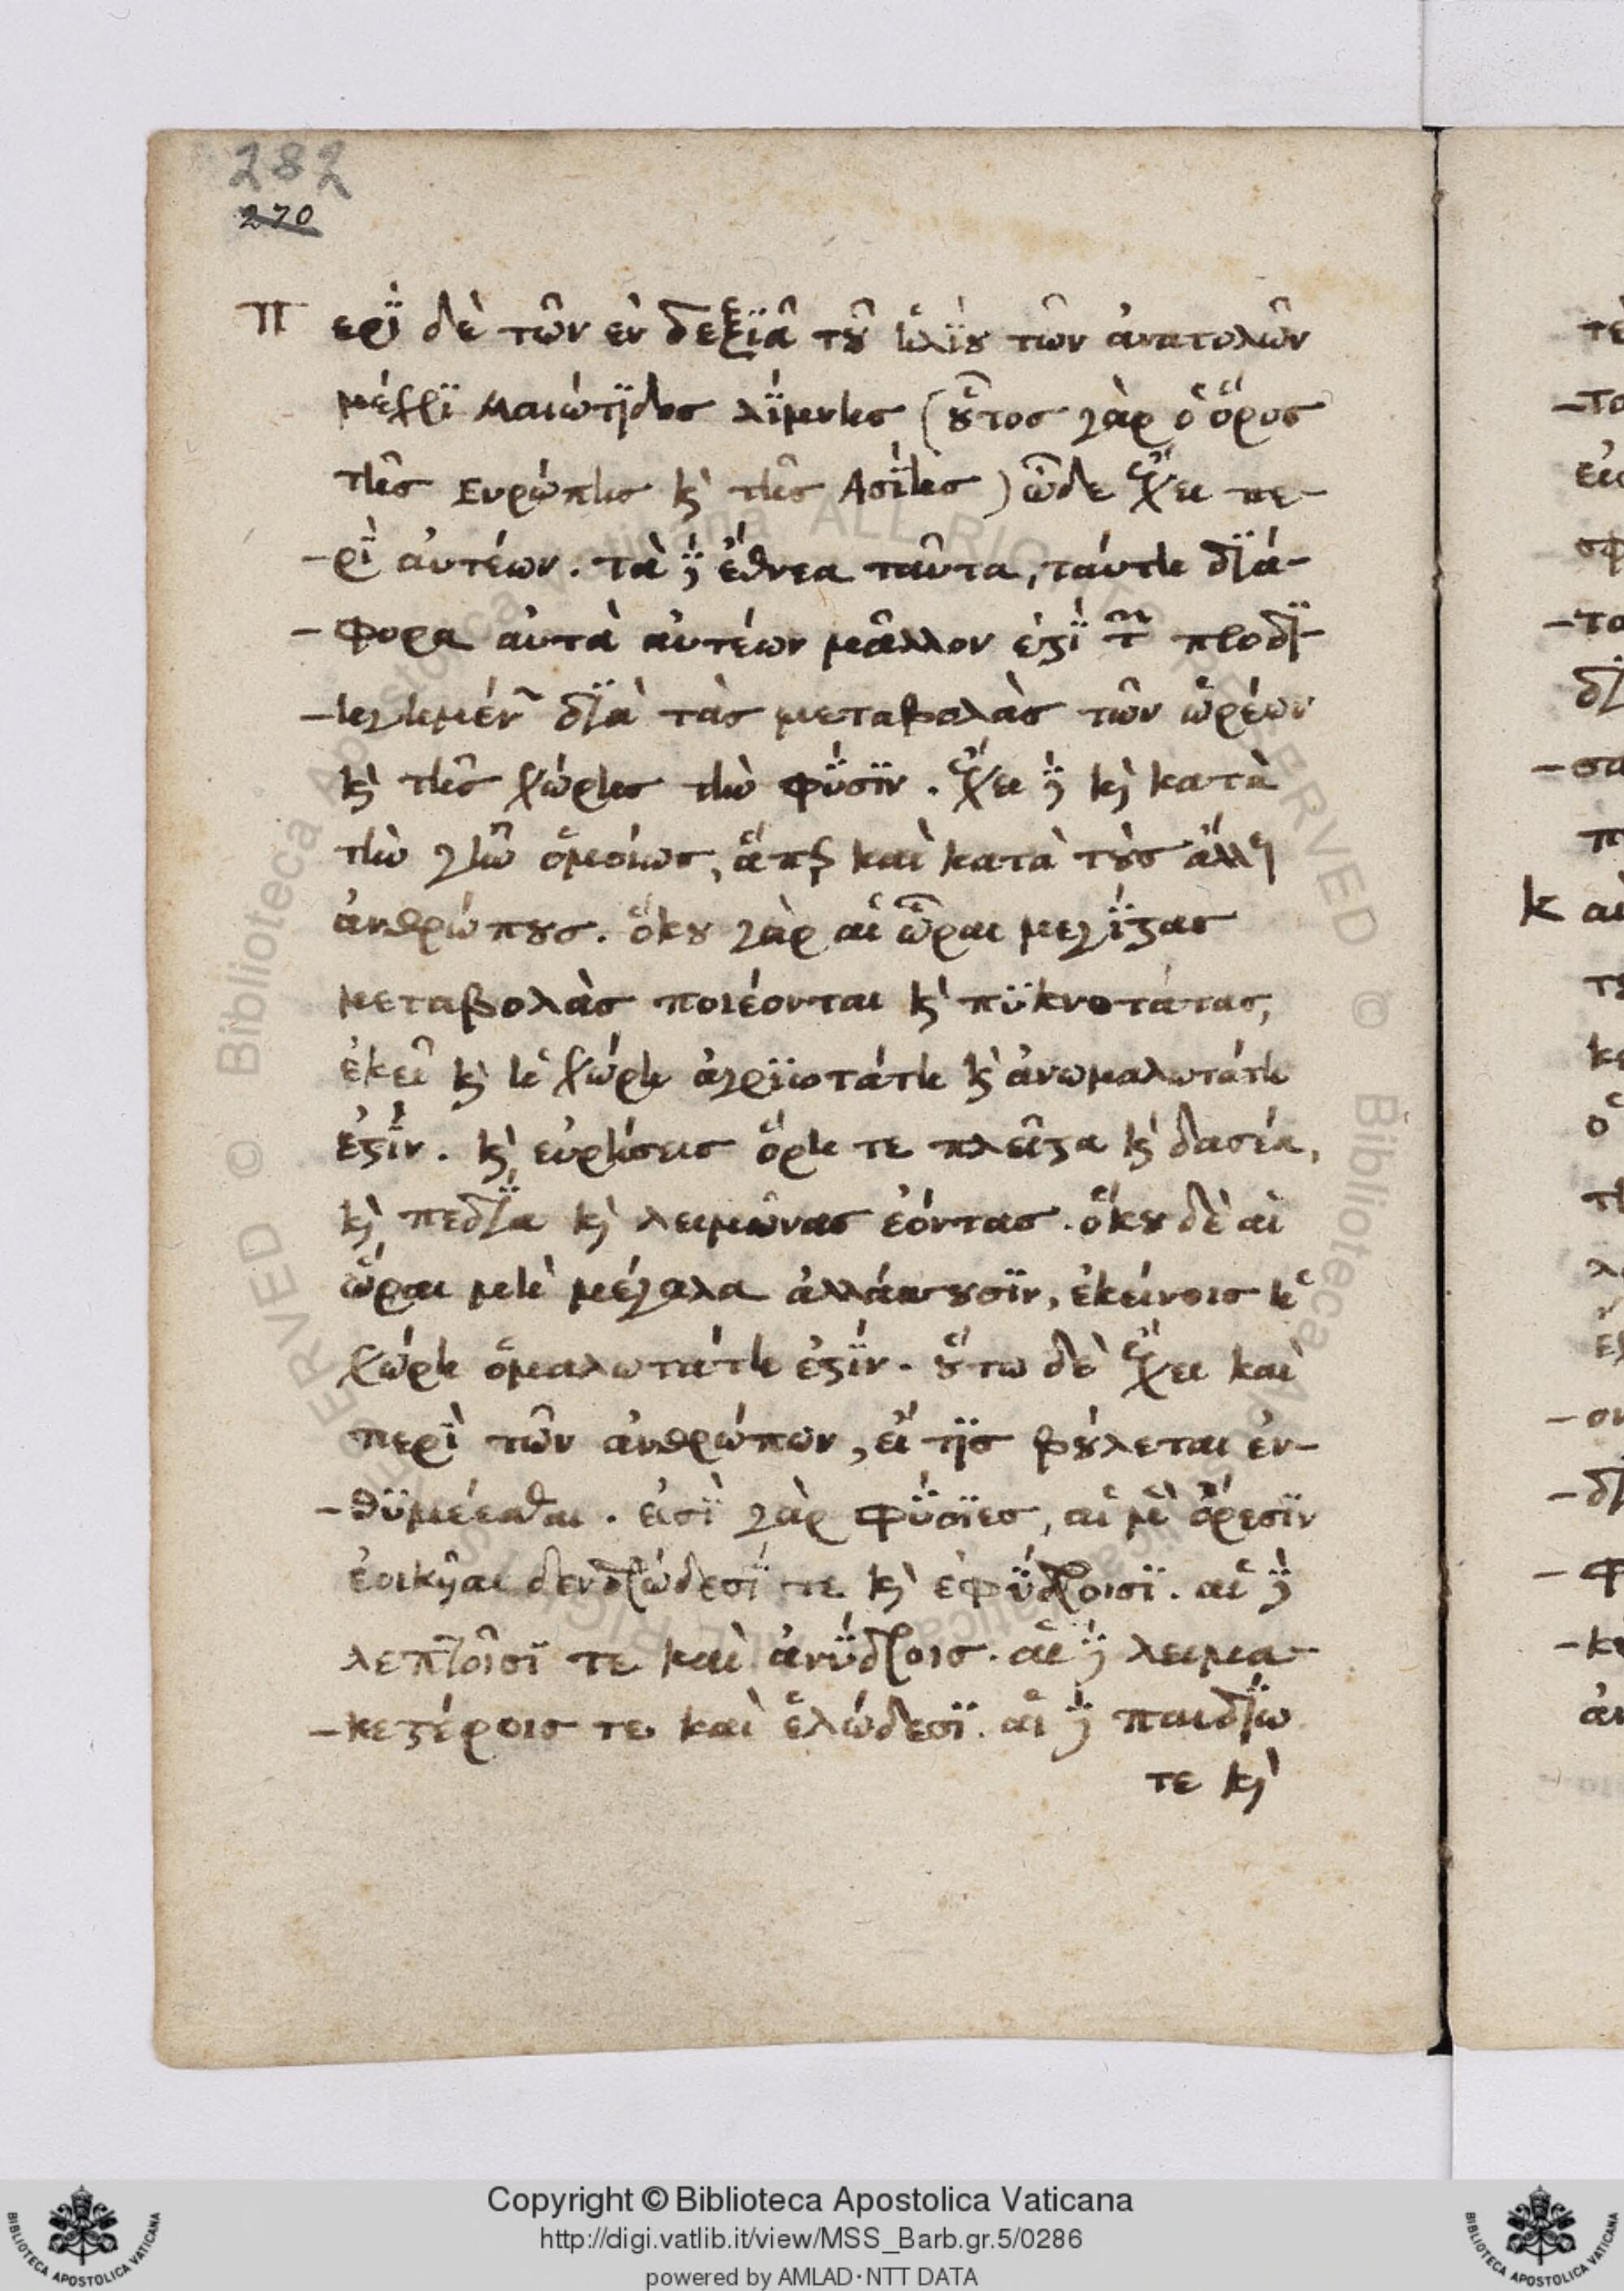 282
270
Περὶ δὲ τῶν ἐν δεξιᾷ τοῦ ἡλίου τῶν ἀνατολῶν
μέχρι Μαιώτιδος λίμνης (οὗτος γὰρ ὁ ὅρος
τῆς Ευρώπης κὶ τῆς Ασίης) ὧδε ἔχει πε-
-ρὶ αὐτέων. τὰ δὲ ἔθνεα ταῦτα, ταύτη διά-
-φορα αὐτὰ αὐτέων μᾶλλον ἐστὶ τῶν προδι-
-ηγημένων διὰ τὰς μεταβολὰς τῶν ὡρέων
κὶ τῆς χώρης τὴν φύσιν. ἔχει δὲ κὶ κατὰ
τὴν γῆν ὁμοίως, ἅπερ καὶ κατὰ τοὺς ἄλλους
ἀνθρώπους. ὅκου γὰρ αἱ ὧραι μεγίστας
μεταβολὰς ποιέονται κὶ πυκνοτάτας,
ἐκεῖ κὶ ἡ χώρη ἀγριωτάτη κὶ ἀνωμαλωτάτη
ἐστίν. κὶ εὑρήσεις ὄρη τε πλεῖστα κὶ δασέα,
κὶ πεδία κὶ λειμῶνας ἐόντας. ὅκου δὲ αἱ
ὧραι μὴ μέγαλα ἀλλάσσουσιν, ἐκείνοις ἡ
χώρη ὁμαλωτάτη ἐστίν. οὕτω δὲ ἔχει καὶ
περὶ τῶν ἀνθρώπων, εἴ τις βούλεται ἐν-
-θυμέεσθαι. εἰσὶ γὰρ φύσιες, αἱ μὲν ὄρεσιν
ἐοικυῖαι δενδρώδεσί τε κὶ ἐφύδροισι. αἱ δὲ
λεπτοῖσί τε καὶ ἀνύδροις. αἱ δὲ λειμα-
-κεστέροις τε καὶ ἑλώδεσι. αἱ δὲ παιδίω
τε κὶ
Copyright © Biblioteca Apostolica Vaticana
http://digi.vatlib.it/view/MSS_Barb.gr.5/0286
powered by AMLAD·NTT DATA